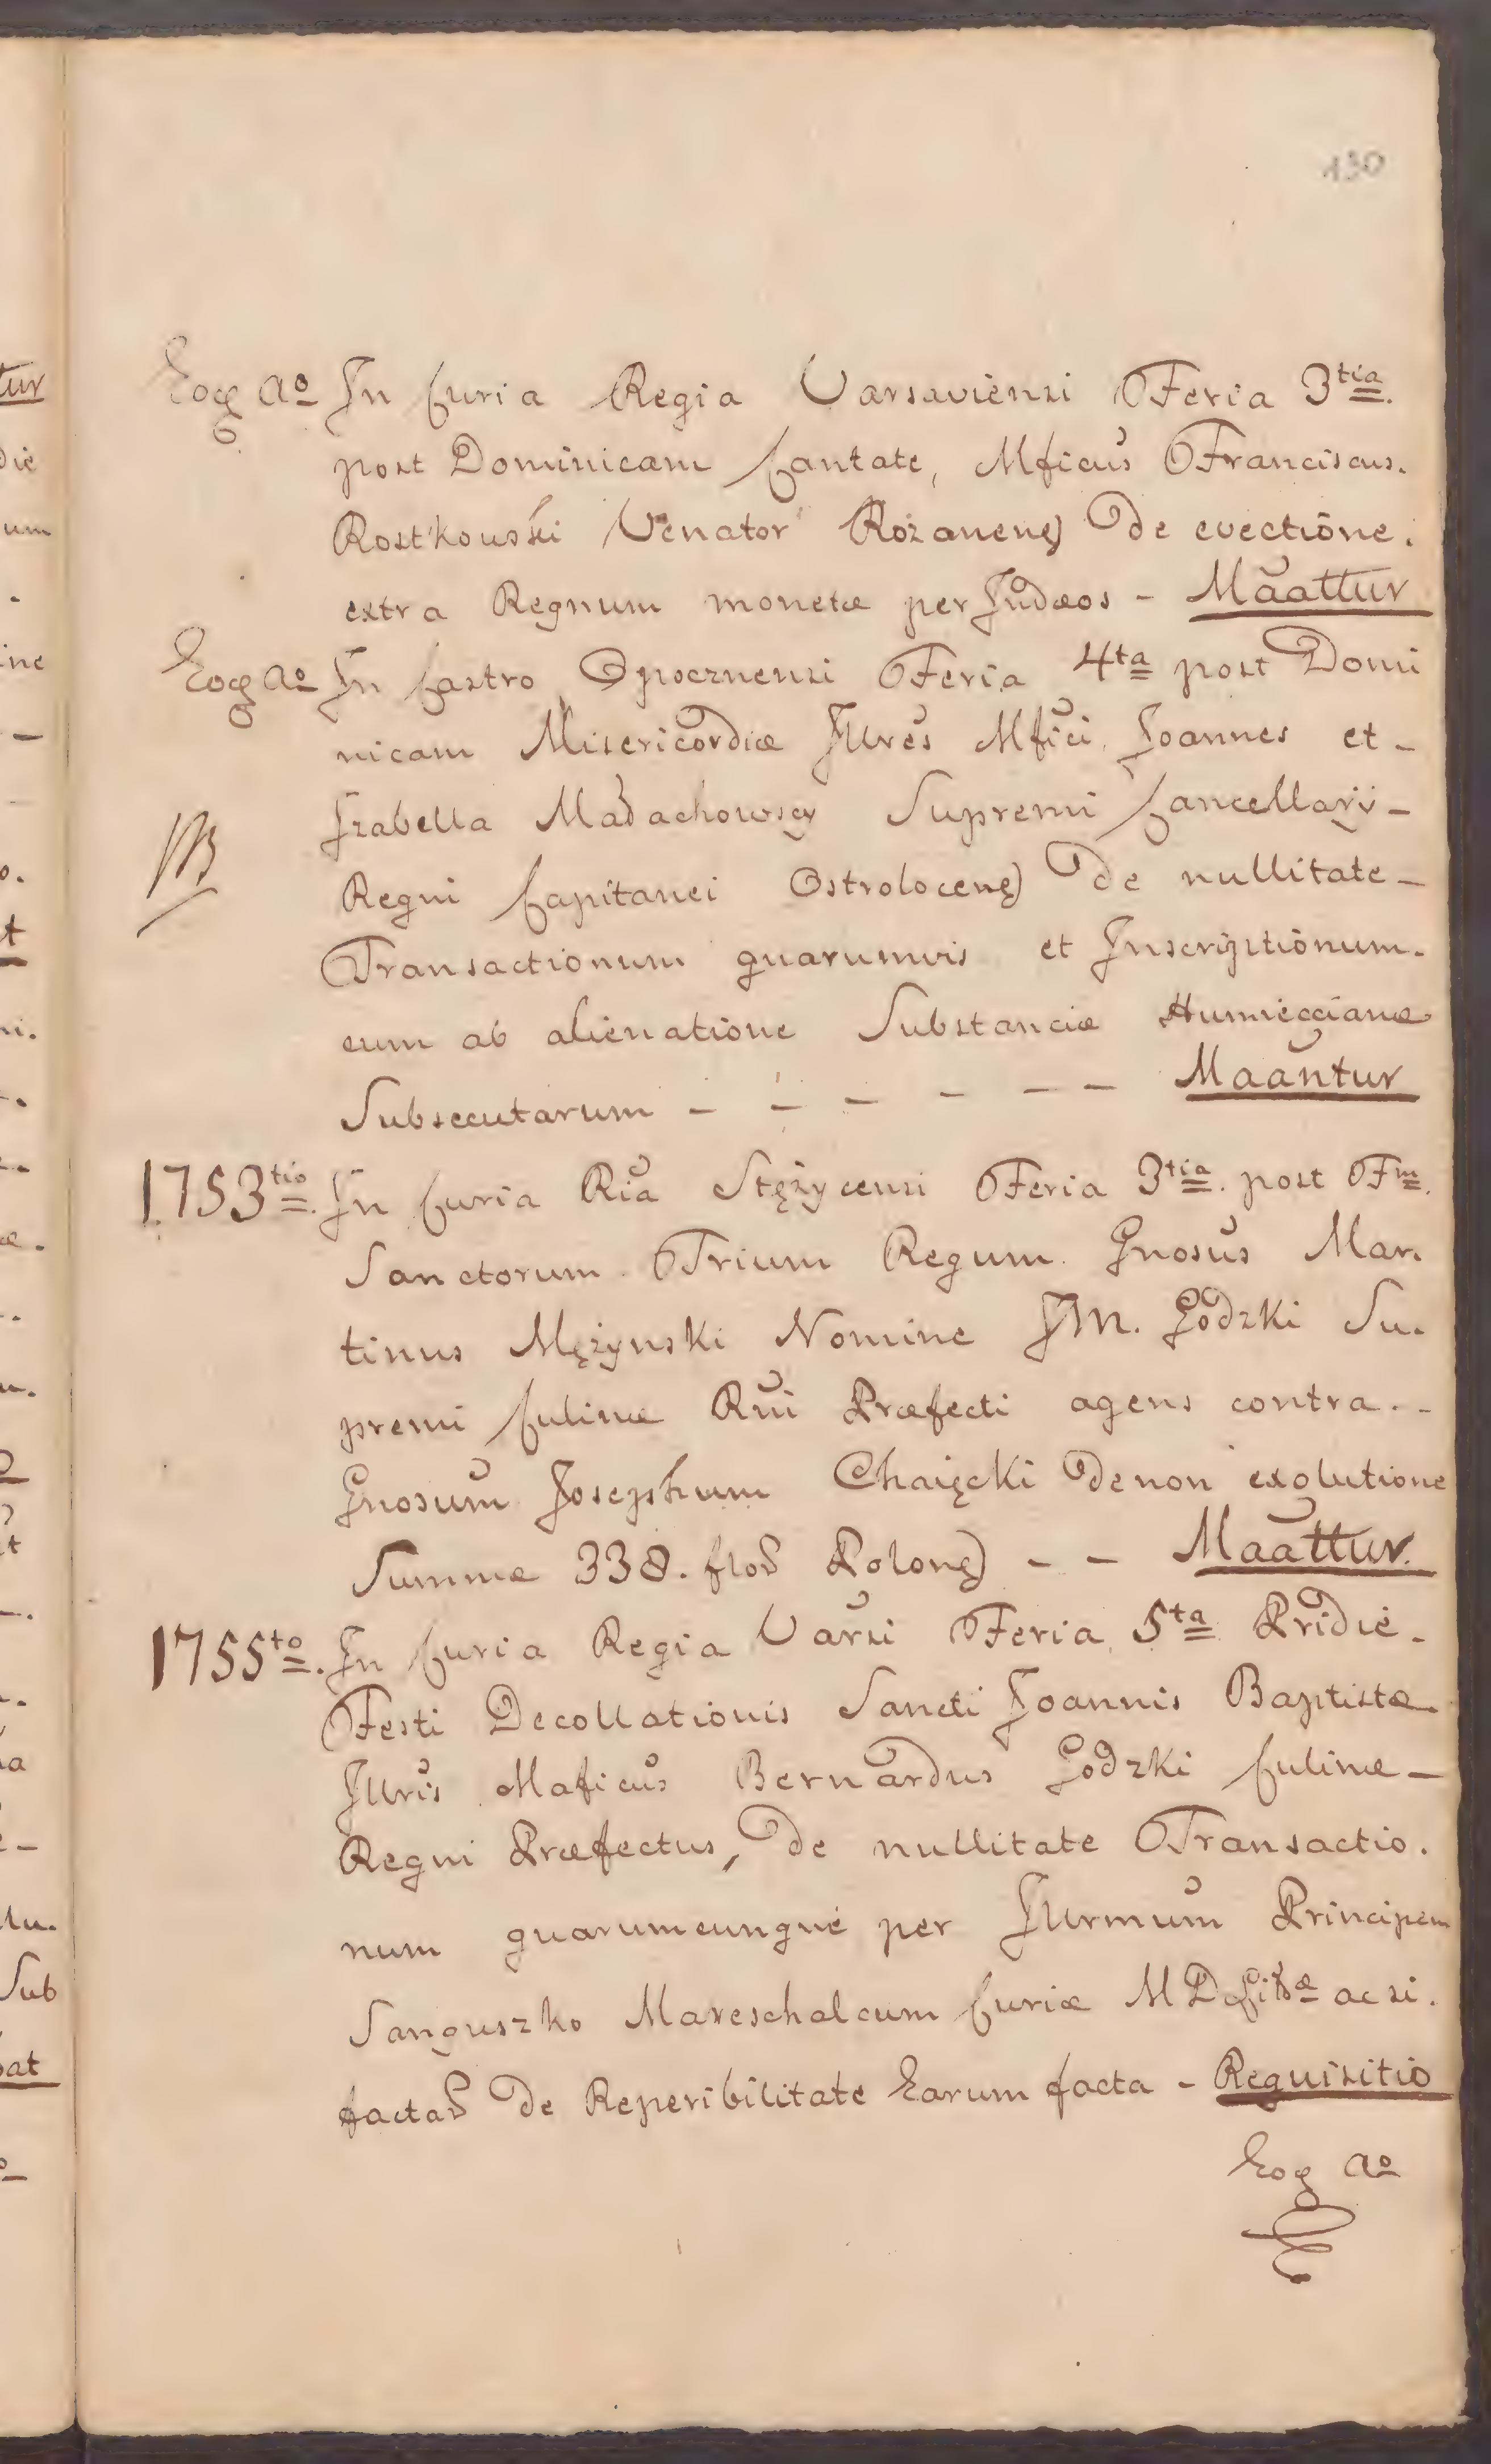 130
Eoq aº In Curia Regia Varsaviensi Feria 3tia
post Dominicam Cantate, Mficus Franciscus.
Rostkowski Venator Rożanens de evectione.
extra Regnum monetæ per Judæos - Maattur
Eoq aº In Castro Opocznensi Feria 4ta post Domi
nicam Misericordiæ Jllres Mfici Joannes et -
Jzabella Małachowscy Supremi Cancellarÿ -
NB
Regni Capitanei Ostrolocens de nullitate -
Transactionum quarumvis et Inscriptionum.
cum ab alienatione Substanciæ Humiecciane
Subsecutarum - - - - - - Maantur
1753tio. In Curia Ria Stężycensi Feria 3tia. post Fm.
Sanctorum Trium Regum Gnosus Mar.
tinus Mężynski Nomine JM. Godzki Su.
premi Culinæ Rni Præfecti agens contra . -
Gnosum Josephum Chaięcki de non exolutione
Summæ 338. flos Polons - - Maattur.
1755to. In Curia Regia Varsi Feria 5ta Pridie.
Festi Decollationis Sancti Joannis Baptistæ.
Jllris Maficus Bernardus Godzki Culinæ -
Regni Præfectus, de nullitate Transactio.
num quarumcunque per Jllrmum Principem
Sanguszko Mareschalcum Curiæ M D Litæ ac si.
factas de Reperibilitate Earum facta - Requisitio
Eoq aº
tur
die
um
ine
t
Sub
bat